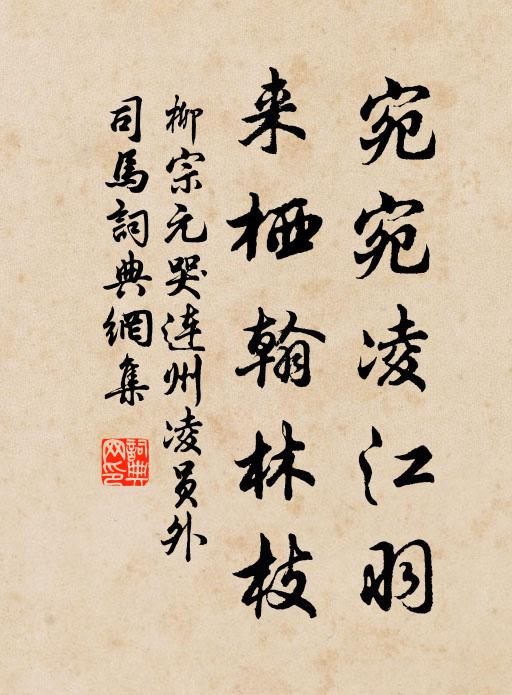 宛宛凌江羽
来栖翰林枝
柳宗元哭连州凌员外
司馬詞典網集
詞典
网印